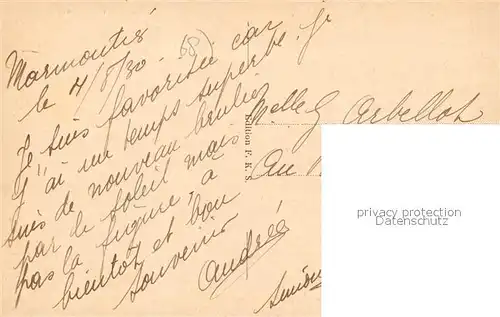 Marmoutier
le 4/8/30. (68)
Je suis favorisée car
j'ai un temps superbe. Je
suis de nouveau brulée
par le soleil mais
pas la figure, à
bientôt et bon
souvenir
Andrée
Melle G Arbellot
Au
Edition F. K. S.
privacy protection
Datenschutz